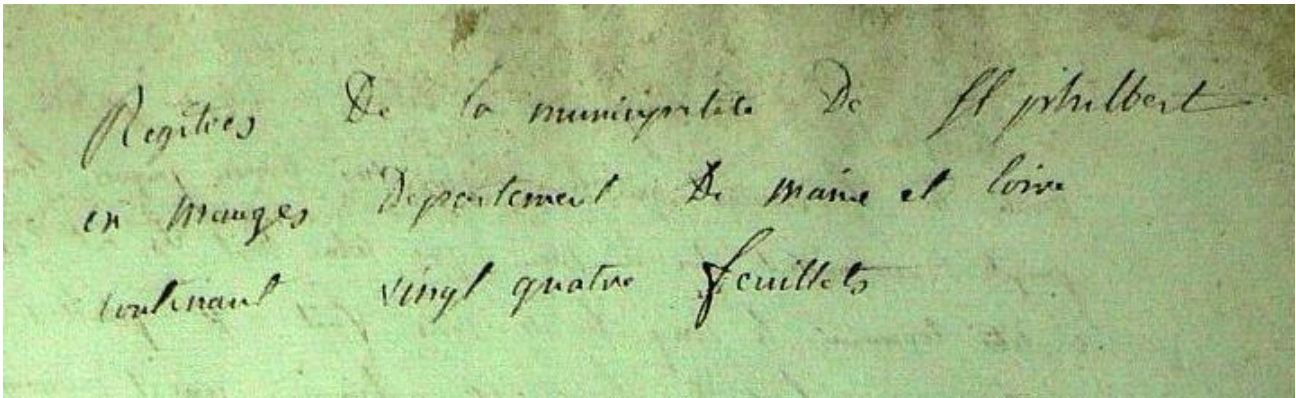 Regitres De la municipalité De St philbert
en mauges Departement De maine et loire
contenant vingt quatre feuillets